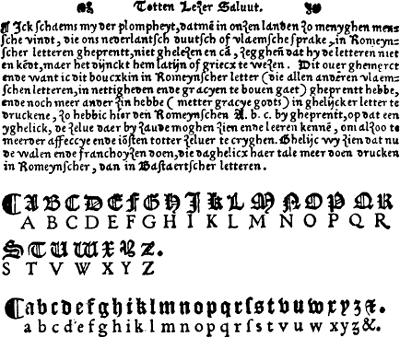 Totten Leʒer Saluut.
¶ Ick schaems my der plompheyt, datmē in onʒen landen ʒo menyghen mens-
sche vindt, die ons nederlantsch duutsch of vlaemsche sprake, in Romeyn-
scher letteren gheprentt, niet gheleʒen en cā, ʒegghen dat hy de letteren niet
en kēdt, maer het dijnckt hem latijn of griecx te weʒen. Dit ouer ghemerct
ende want ic dit boucxkin in Romeynscher letter (die allen anderen vlaem-
schen letteren, in nettigheden ende gracyen te bouen gaet) gheprentt hebbe,
ende noch meer ander ʒin hebbe (metter gracye gods) in ghelijcker letter te
druckene, ʒo hebbic hier den Romeynschen A. b. c. by gheprentt, op dat een
yghelick, de ʒelue daer by ʒaude moghen ʒien ende leeren kennē, om alʒoo te
meerder affeccye ende iōsten totter ʒeluer te cryghen. Ghelijc wy ʒien dat nu
de walen ende franchoyʒen doen, die daghelicx haer tale meer doen drucken
in Romeynscher, dan in Bastaertscher letteren.
¶ A B C D E F G H I K L M N O P Q R
A B C D E F G H I K L M N O P Q R
S T U W X Y Z.
S T V W X Y Z
¶ a b c d e f g h i k l m n o p q r ſ s t v u w x y ʒ &.
a b c d e f g h i k l m n o p q r ſ s t v u w x y z &.